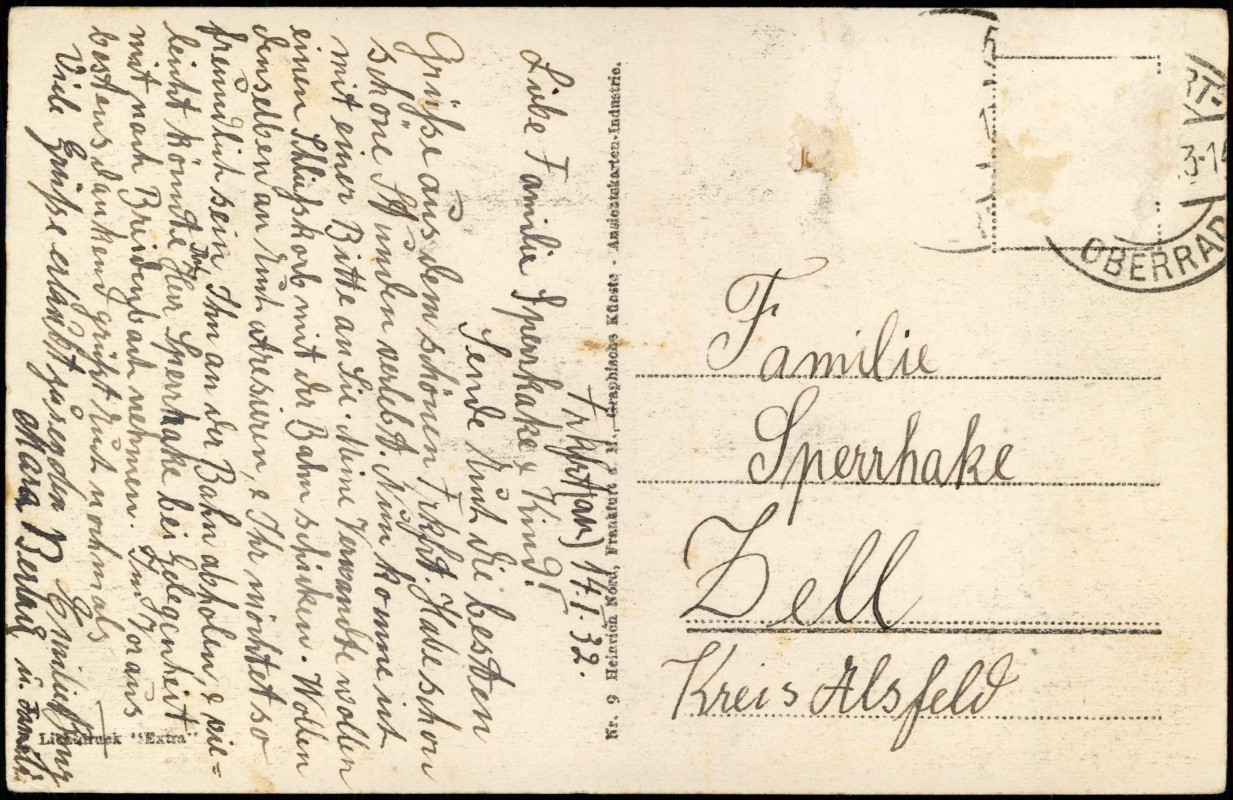 Frkfrt a/M 14.I.32.
Liebe Familie Sperrhake & Kind!
Sende Euch die besten
Grüße aus dem schönen Frkfrt. Habe schon
schöne Stunden verlebt. Nun komme ich
mit einer Bitte an Sie. Meine Verwandte wollen
einen Schließkorb mit der Bahn schicken. Wollen
denselben an Euch adresieren, & Ihr möchtet so
freundlich sein Ihn an der Bahn abholen, & vie=
leicht könnte Ihn Herr Sperrhake bei Gelegenheit
mit nach Breidenbach nehmen. Im Voraus
bestens dankend grüßt Euch nochmals
Emilie
Viele Grüße erlaubt zu senden
Mara u. Familie
Lichtdruck "Extra"
Nr. 9 Heinrich Nord, Frankfurt a. M., Graphische Künste - Ansichtskarten-Industrie.
RT-
3-14
OBERRAD
Familie
Sperrhake
Zell
Kreis Alsfeld